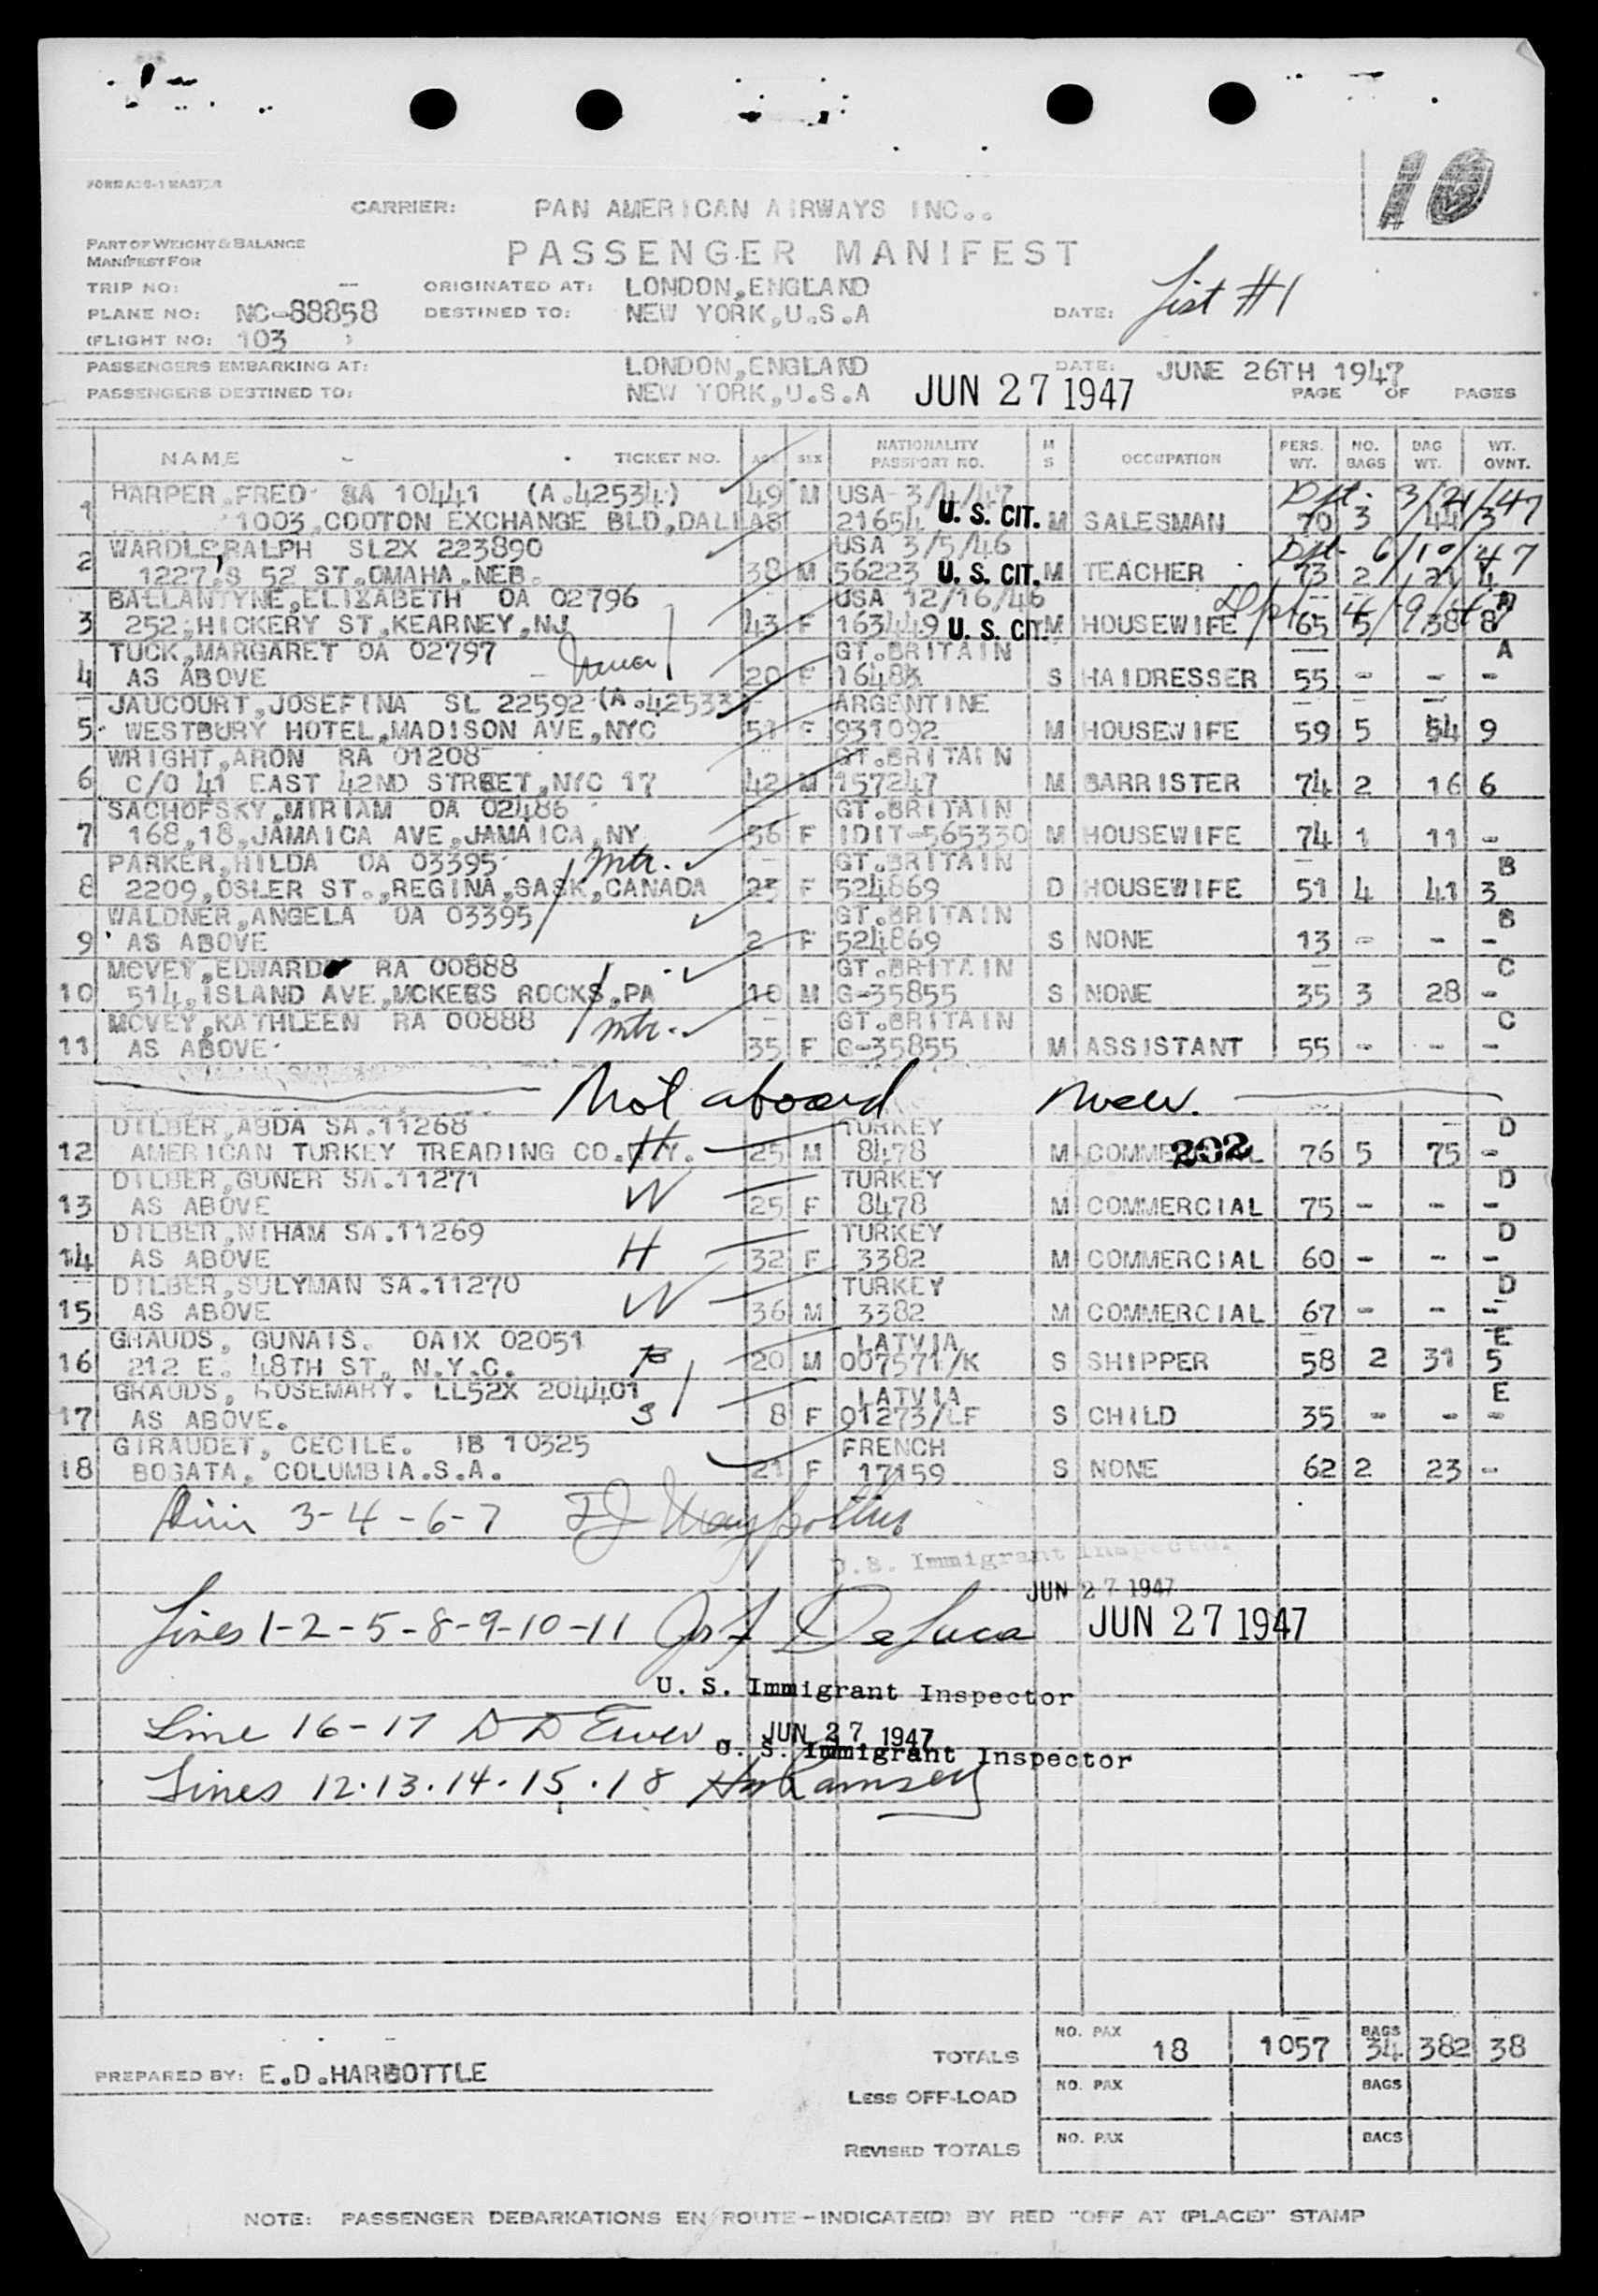 10
CARRIER: PAN AMERICAN AIRWAYS INC..
PART OF WEIGHT & BALANCE
MANIFEST FOR
PASSENGER MANIFEST
TRIP NO: --
ORIGINATED AT: LONDON,ENGLAND
PLANE NO: NC-88858
DESTINED TO: NEW YORK,U.S.A
DATE: List #1
(FLIGHT NO: 103 )
PASSENGERS EMBARKING AT: LONDON,ENGLAND DATE: JUNE 26TH 1947
PASSENGERS DESTINED TO: NEW YORK,U.S.A JUN 27 1947 PAGE OF PAGES
NAME TICKET NO. AGE SEX NATIONALITY PASSPORT NO. M S OCCUPATION PERS. WT. NO. BAGS BAG WT. WT. OVNT.
1 HARPER,FRED SA 10441 (A.42534) 49 M USA 3/4/47 Dpt. 3/21/47
1003,COOTON EXCHANGE BLD,DALLAS 21654 U. S. CIT. M SALESMAN 70 3 44 3
2 WARDLE,RALPH SL2X 223890 USA 3/5/46 Dpt. 6/10/47
1227,S 52 ST,OMAHA,NEB. 38 M 56223 U. S. CIT. M TEACHER 73 2 21 4
3 BALLANTYNE,ELIZABETH OA 02796 USA 12/16/46 A
252,HICKERY ST,KEARNEY,NJ 43 F 163449 U. S. CIT. M HOUSEWIFE 65 5 38 8
4 TUCK,MARGARET OA 02797 GT.BRITAIN A
AS ABOVE 20 F S HAIDRESSER 55 - - -
5 JAUCOURT,JOSEFINA SL 22592 (A.42533) ARGENTINE
WESTBURY HOTEL,MADISON AVE,NYC 51 F 931092 M HOUSEWIFE 59 5 54 9
6 WRIGHT,ARON RA 01208 GT.BRITAIN
C/O 41 EAST 42ND STREET,NYC 17 42 M 157247 M BARRISTER 74 2 16 6
7 SACHOFSKY,MIRIAM OA 02486 GT.BRITAIN
168,18,JAMAICA AVE,JAMAICA,NY 56 F IDIT-565330 M HOUSEWIFE 74 1 11 -
8 PARKER,HILDA OA 03395 mtr. GT.BRITAIN B
2209,OSLER ST.,REGINA,SASK,CANADA 25 F 524869 D HOUSEWIFE 51 4 41 3
9 WALDNER,ANGELA OA 03395 GT.BRITAIN B
AS ABOVE 2 F 524869 S NONE 13 - - -
10 MCVEY,EDWARD RA 00888 GT.BRITAIN C
514,ISLAND AVE,MCKEES ROCKS,PA 10 M G-35855 S NONE 35 3 28 -
11 MCVEY,KATHLEEN RA 00888 mtr. GT.BRITAIN C
AS ABOVE 35 F G-35855 M ASSISTANT 55 - - -
Not aboard
12 DILBER,ABDA SA.11268 TURKEY D
AMERICAN TURKEY TREADING CO.N.Y. H 25 M 8478 M COMMERCIAL 202 76 5 75 -
13 DILBER,GUNER SA.11271 TURKEY D
AS ABOVE W 25 F 8478 M COMMERCIAL 75 - - -
14 DILBER,NIHAM SA.11269 TURKEY D
AS ABOVE H 32 F 3382 M COMMERCIAL 60 - - -
15 DILBER,SULYMAN SA.11270 TURKEY D
AS ABOVE W 36 M 3382 M COMMERCIAL 67 - - -
16 GRAUDS, GUNAIS. OAIX 02051 LATVIA E
212 E. 48TH ST, N.Y.C. B 20 M 007571/K S SHIPPER 58 2 31 5
17 GRAUDS, ROSEMARY. LL52X 204401 LATVIA E
AS ABOVE. S 8 F 01273/LF S CHILD 35 - - -
18 GIRAUDET, CECILE. IB 10325 FRENCH
BOGATA, COLUMBIA.S.A. 21 F 17159 S NONE 62 2 23 -
3-4-6-7
U.S. Immigrant Inspector
JUN 27 1947
Lines 1-2-5-8-9-10-11 Jos F DeLuca JUN 27 1947
U. S. Immigrant Inspector
Line 16-17 D D Ewer JUN 27 1947
U. S. Immigrant Inspector
Lines 12.13.14.15.18 Ramsey
NO. PAX BAGS
TOTALS 18 1057 34 382 38
PREPARED BY: E.D.HARBOTTLE
LESS OFF-LOAD NO. PAX BAGS
REVISED TOTALS NO. PAX BAGS
NOTE: PASSENGER DEBARKATIONS EN ROUTE-INDICATE(D) BY RED "OFF AT (PLACE)" STAMP